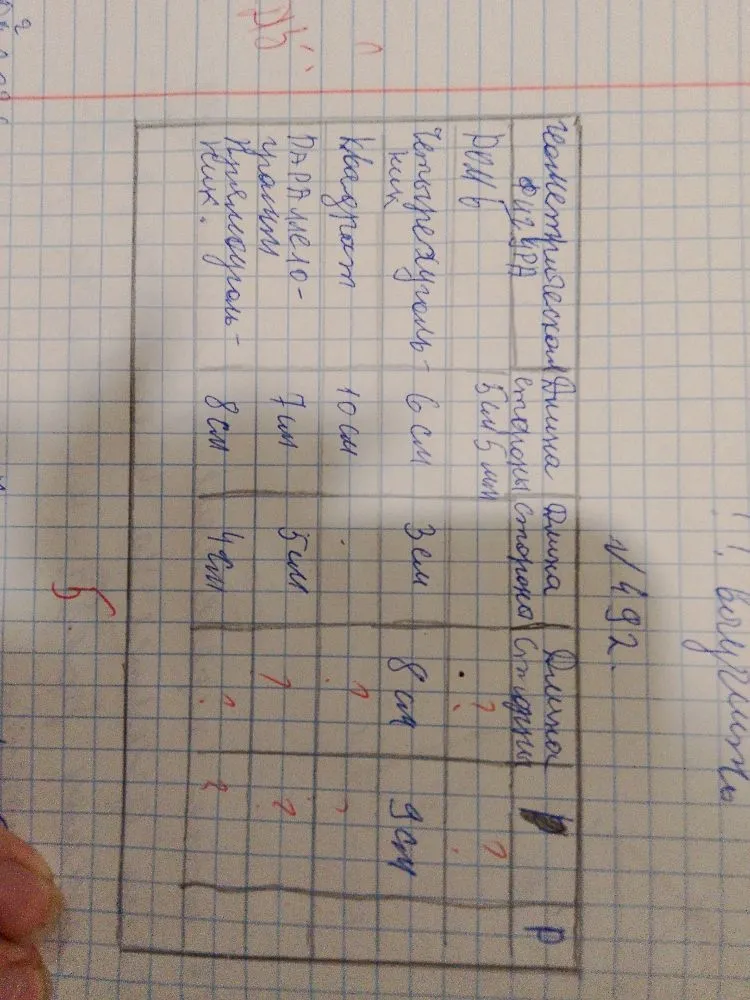 выучить
№ 492.
Геометрическая фигура Длина стороны Длина стороны Длина стороны P P
Ромб 5см 5мм ? ?
Четырехуголь- 6 см 3 см 8 см 9 см
ник
Квадрат 10 см ? ?
ПАРАллело- 7 см 5 см ? ?
грамм
Прямоуголь- 8 см 4 см ? ?
ник.
5.